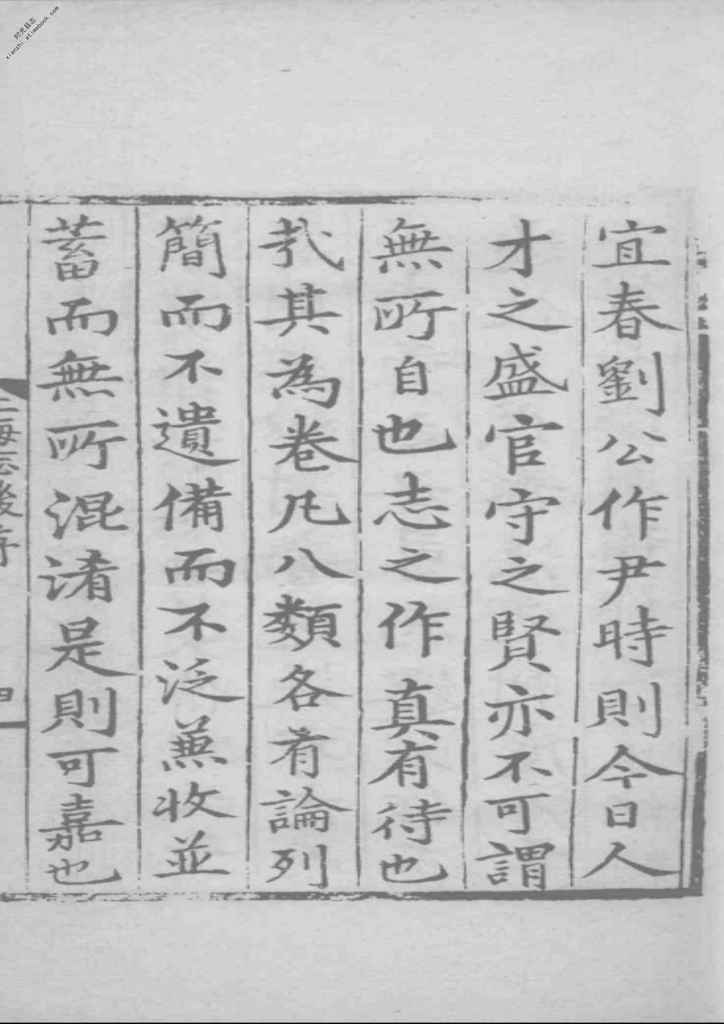 宜春劉公作尹時則今日人
才之盛官守之賢亦不可謂
無所自也志之作真有待也
哉其為卷凡八類各有論列
簡而不遺備而不泛兼收並
蓄而無所混淆是則可嘉也
上海志後序
四